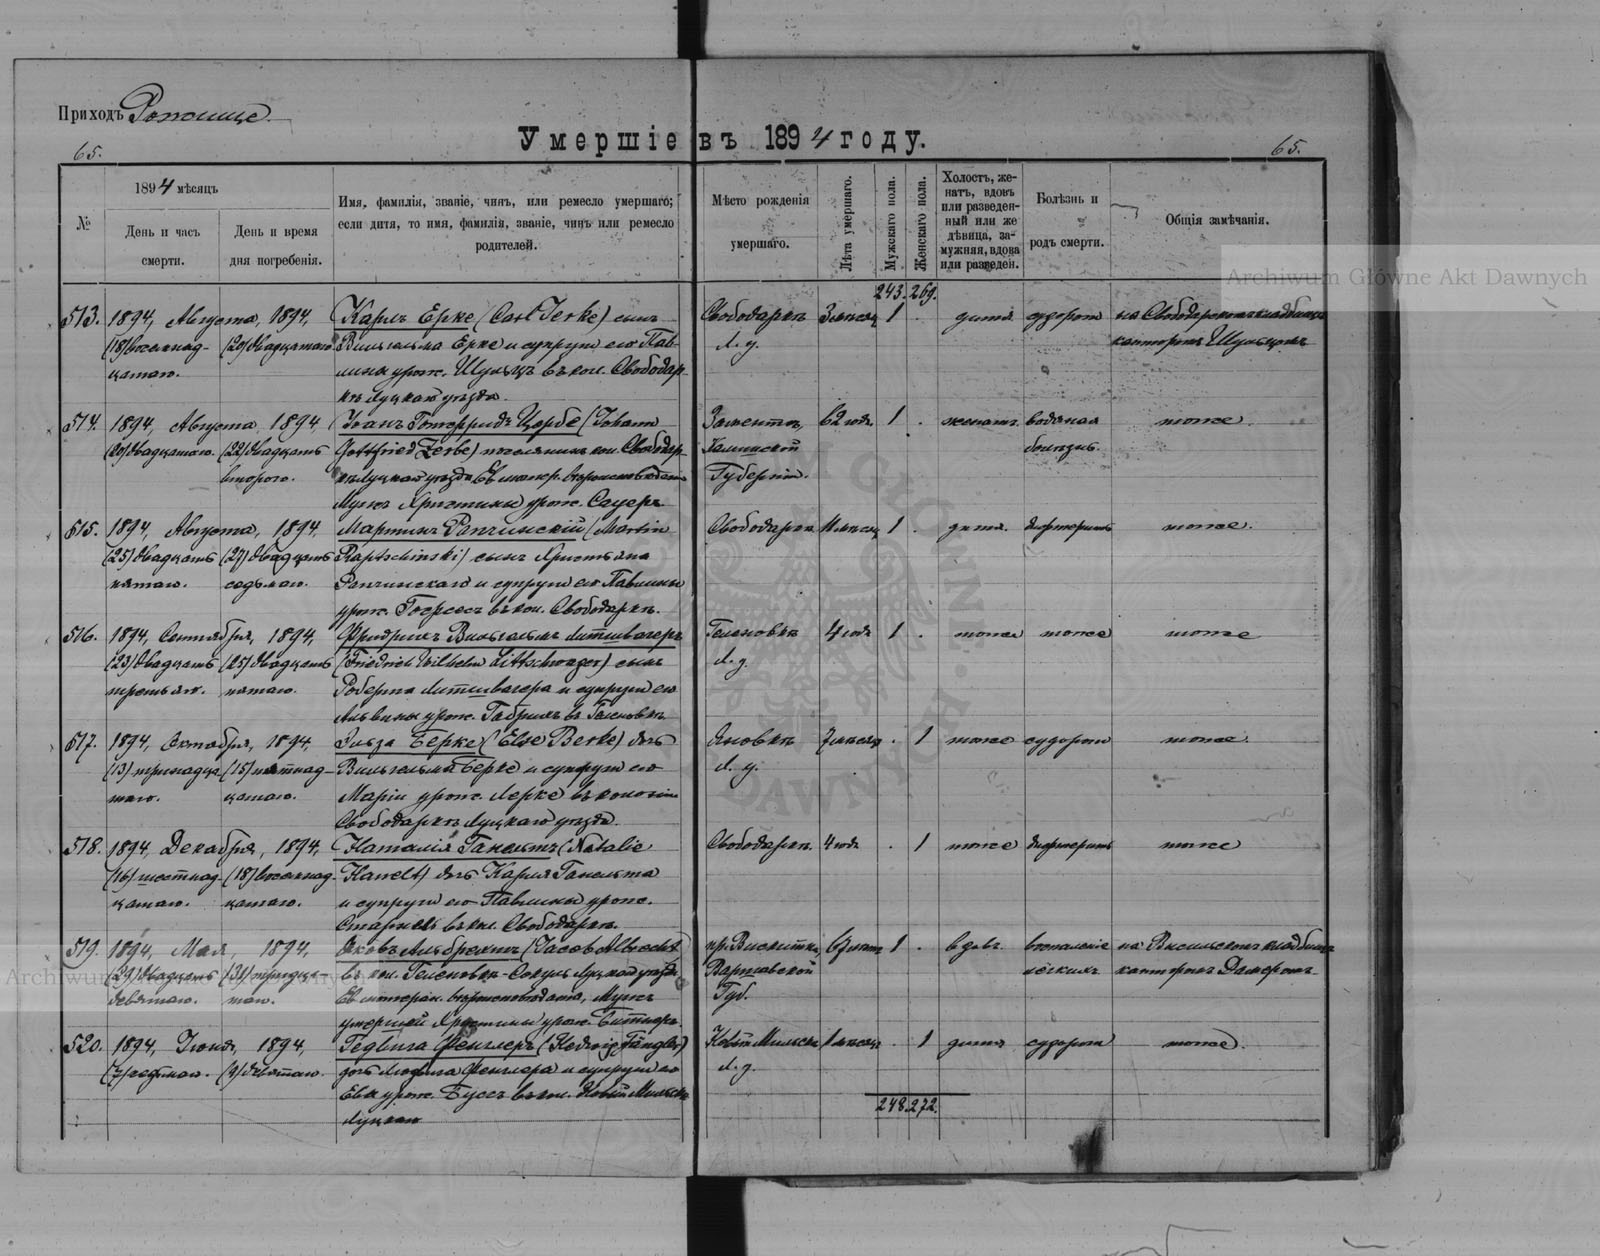 Приходъ Рожище.
Умершіе въ 1894 году.
65.
65.
№
1894 мѣсяцъ
День и часъ смерти.
День и время дня погребенія.
Имя, фамилія, званіе, чинъ, или ремесло умершаго; если дитя, то имя, фамилія, званіе, чинъ или ремесло родителей.
Мѣсто рожденія умершаго.
Лѣта умершаго.
Мужскаго пола.
Женскаго пола.
Холостъ, женатъ, вдовъ или разведенный или же дѣвица, замужняя, вдова или разведен.
Болѣзнь и родъ смерти.
Общія замѣчанія.
243. 269.
513. 1894, Августа, 1894, Карлъ Ерке (Carl Jerke) сынъ Свободарка 3 мѣсяц 1 . дитя судороги на Свободарскомъ кладбищѣ
(18) восемнад- (20) двадцатаго Вильгельма Ерке и супруги его Пав- Л. у. канторъ Шульцъ
цатаго. лины урож. Шульцъ въ кол. Свободар-
кѣ Луцкаго уѣзда.
514. 1894, Августа, 1894, Іоанъ Готфридъ Цербе (Johann 62 года 1 . женатъ водяная тоже
(20) двадцатаго. (22) двадцать Gottfried Zerbe) поселянинъ кол. Свободар- Калишской болѣзнь.
второго. кѣ Луцкаго уѣзда Губерніи.
Мужъ Христины урож. Сауеръ
515. 1894, Августа, 1894, Мартинъ Рапчинскій (Martin Свободарка 11 мѣсяц 1 . дитя. дифтеритъ тоже.
(25) двадцать (27) двадцать Raptschinski) сынъ Христьяна
пятаго. седьмаго. Рапчинскаго и супруги его Павлины
урож. въ кол. Свободаркѣ.
516. 1894, Сентября, 1894, Фридрихъ Вильгельмъ Литшвагеръ Геленовка 4 года 1 . тоже тоже тоже
(23) двадцать (25) двадцать (Friedrich Wilhelm Littschwager) сынъ Л. у.
третьяго. пятаго. Роберта Литшвагера и супруги его
Альвины урож. Габрихъ въ Геленовкѣ
517. 1894, Октября, 1894, Эльза Берке (Else Berke) дочь Яновка 7 мѣсяц . 1 тоже судороги тоже.
(13) тринадца- (15) пятнад- Вильгельма Берке и супруги его Л. у.
таго. цатаго. Маріи урож. Лерке въ колоніи
Свободаркѣ Луцкаго уѣзда.
518. 1894, Декабря, 1894, Наталія Ганельтъ (Natalie Свободарка 4 года . 1 тоже дифтеритъ тоже
(16) шестнад- (18) восемнад- Hanelt) дочь Карла Ганельта
цатаго. цатаго. и супруги его Павлины урож.
въ кол. Свободаркѣ.
519. 1894, Мая, 1894, Яковъ Альбрехтъ (Jacob Albrecht) 1 . вдовъ воспаленіе кладбищѣ
(29) двадцать (31) тридца- въ кол. Геленовкѣ Луцкаго уѣзда Варшавской легкихъ канторъ
девятаго. таго. вѣроисповѣданія, Мужъ Губ.
умершей Христины урож.
520. 1894, Іюня, 1894, Гедвига Фенглеръ (Hedwig Fängler) 1 мѣсяц . 1 дитя судороги тоже
(7) седьмаго. (9) девятаго. дочь Людвига Фенглера и супруги его Л. у.
Евы урож. Буссъ въ кол.
Луцкаго
248. 272.
Archiwum Główne Akt Dawnych
Archiwum Główne Akt Dawnych